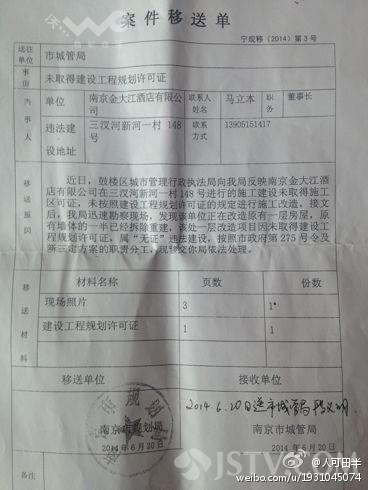 案件移送单
宁规移（2014）第3号
送往单位 市城管局
事由 未取得建设工程规划许可证
当事人 单位 南京金大江酒店有限公司 联系人姓名 马立本 职务 董事长
违法建设地址 三汊河新河一村148号 联系方式 13905151417
移送原因
近日，鼓楼区城市管理行政执法局向我局反映南京金大江酒
店有限公司在三汊河新河一村148号进行的施工建设未取得施工
许可证，未按照建设工程规划许可证的规定进行施工改造，接文
后，我局迅速勘察现场，发现该单位正在改造原有一层房屋，原
有墙体的一半已经拆除重建，该处一层改造项目因未取得建设工
程规划许可证，属"无证"违法建设，按照市政府第275号令及
新三定方案的职责分工，现移交你局依法处理。
移送材料 材料名称 页数 份数
现场照片 3 1
建设工程规划许可证 1 1
移送单位 接收单位
2014.6.20日送市城管局
南京市规划局 南京市城管局
2014年6月20日 2014年6月20日
备注
JSTV.COM
@人可田半
weibo.com/u/1931045074